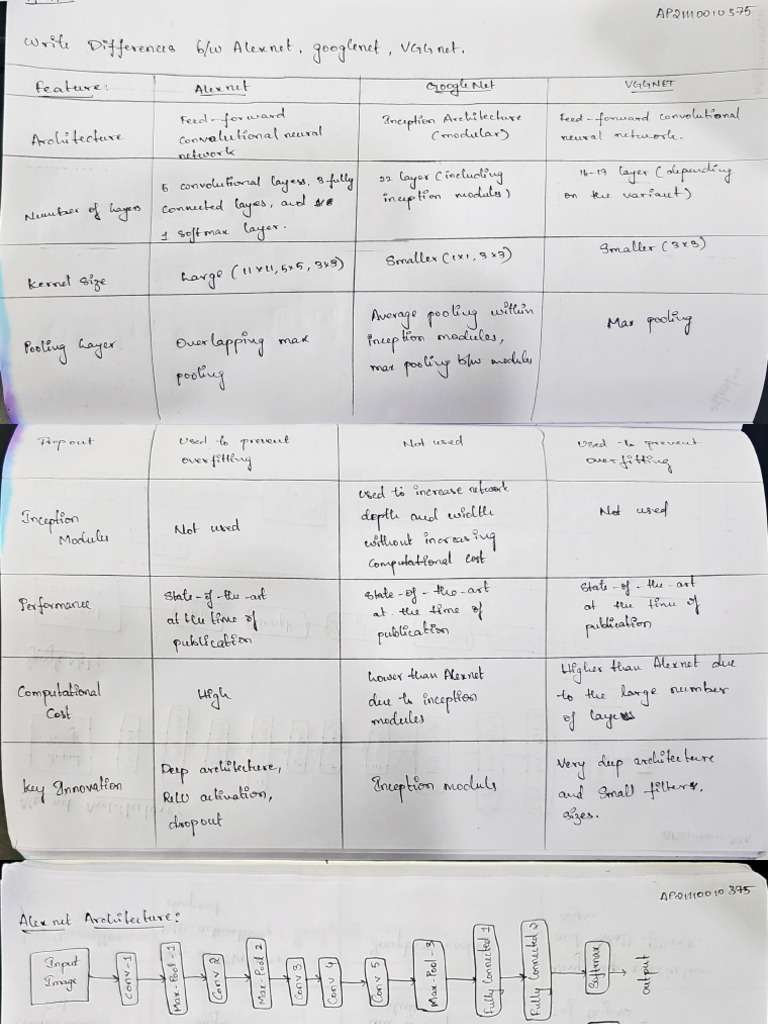 AP21110010375
Write Differences b/w Alexnet, googlenet, VGGnet.
Feature:
Alexnet
GoogleNet
VGGNET
Architecture
Feed-forward
convolutional neural
network
Inception Architecture
(modular)
Feed-forward convolutional
neural network.
Number of layers
5 convolutional layers, 3 fully
connected layers, and
1 softmax layer.
22 layer (including
inception modules)
16-19 layer (depending
on the variant)
Kernel Size
Large (11x11, 5x5, 3x3)
Smaller (1x1, 3x3)
Smaller (3x3)
Pooling Layer
Overlapping max
pooling
Average pooling within
inception modules,
max pooling b/w modules
Max pooling
Dropout
Used to prevent
overfitting
Not used
Used to prevent
overfitting
Inception
Modules
Not used
Used to increase network
depth and width
without increasing
computational cost
Not used
Performance
State-of-the-art
at the time of
publication
State-of-the-art
at the time of
publication
State-of-the-art
at the time of
publication
Computational
Cost
High
Lower than Alexnet
due to inception
modules
Higher than Alexnet due
to the large number
of layers
Key Innovation
Deep architecture,
ReLU activation,
dropout
Inception moduls
Very deep architecture
and small filters.
sizes.
AP21110010375
Alexnet Architecture:
Input
Image
Conv-1
Max-Pool-1
Conv 2
Max-Pool 2
Conv 3
Conv 4
Conv 5
Max-Pool-3
Fully Connected 1
Fully Connected 2
Softmax
output